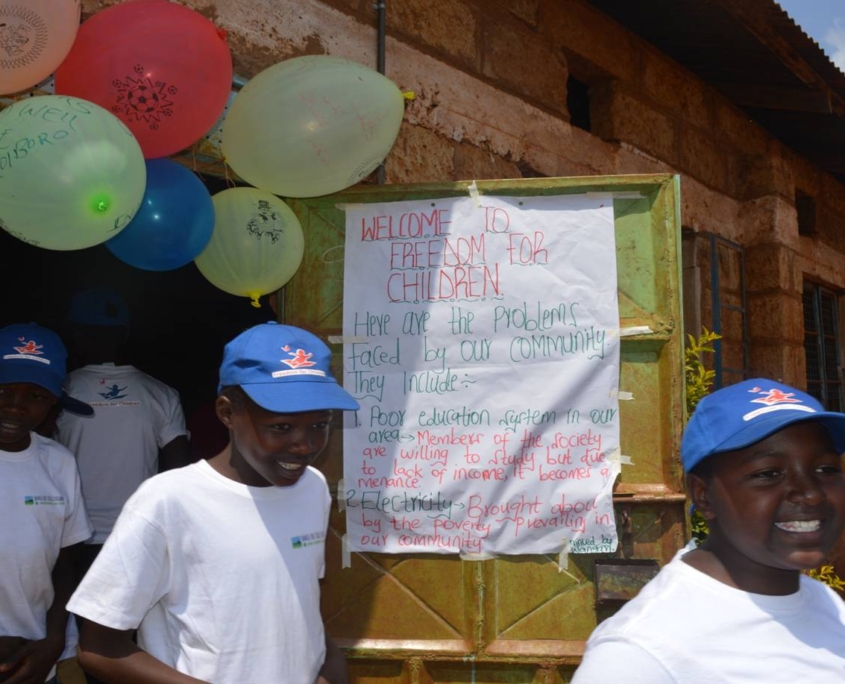 WELL
WELCOME TO
FREEDOM FOR
CHILDREN.
Here are the Problems
faced by our community
They Include:~
1. Poor education system in our
area→Members of the society
are willing to study but due
to lack of income, it becomes a
menance.
2. Electricity→Brought about
by the poverty prevailing in
our community